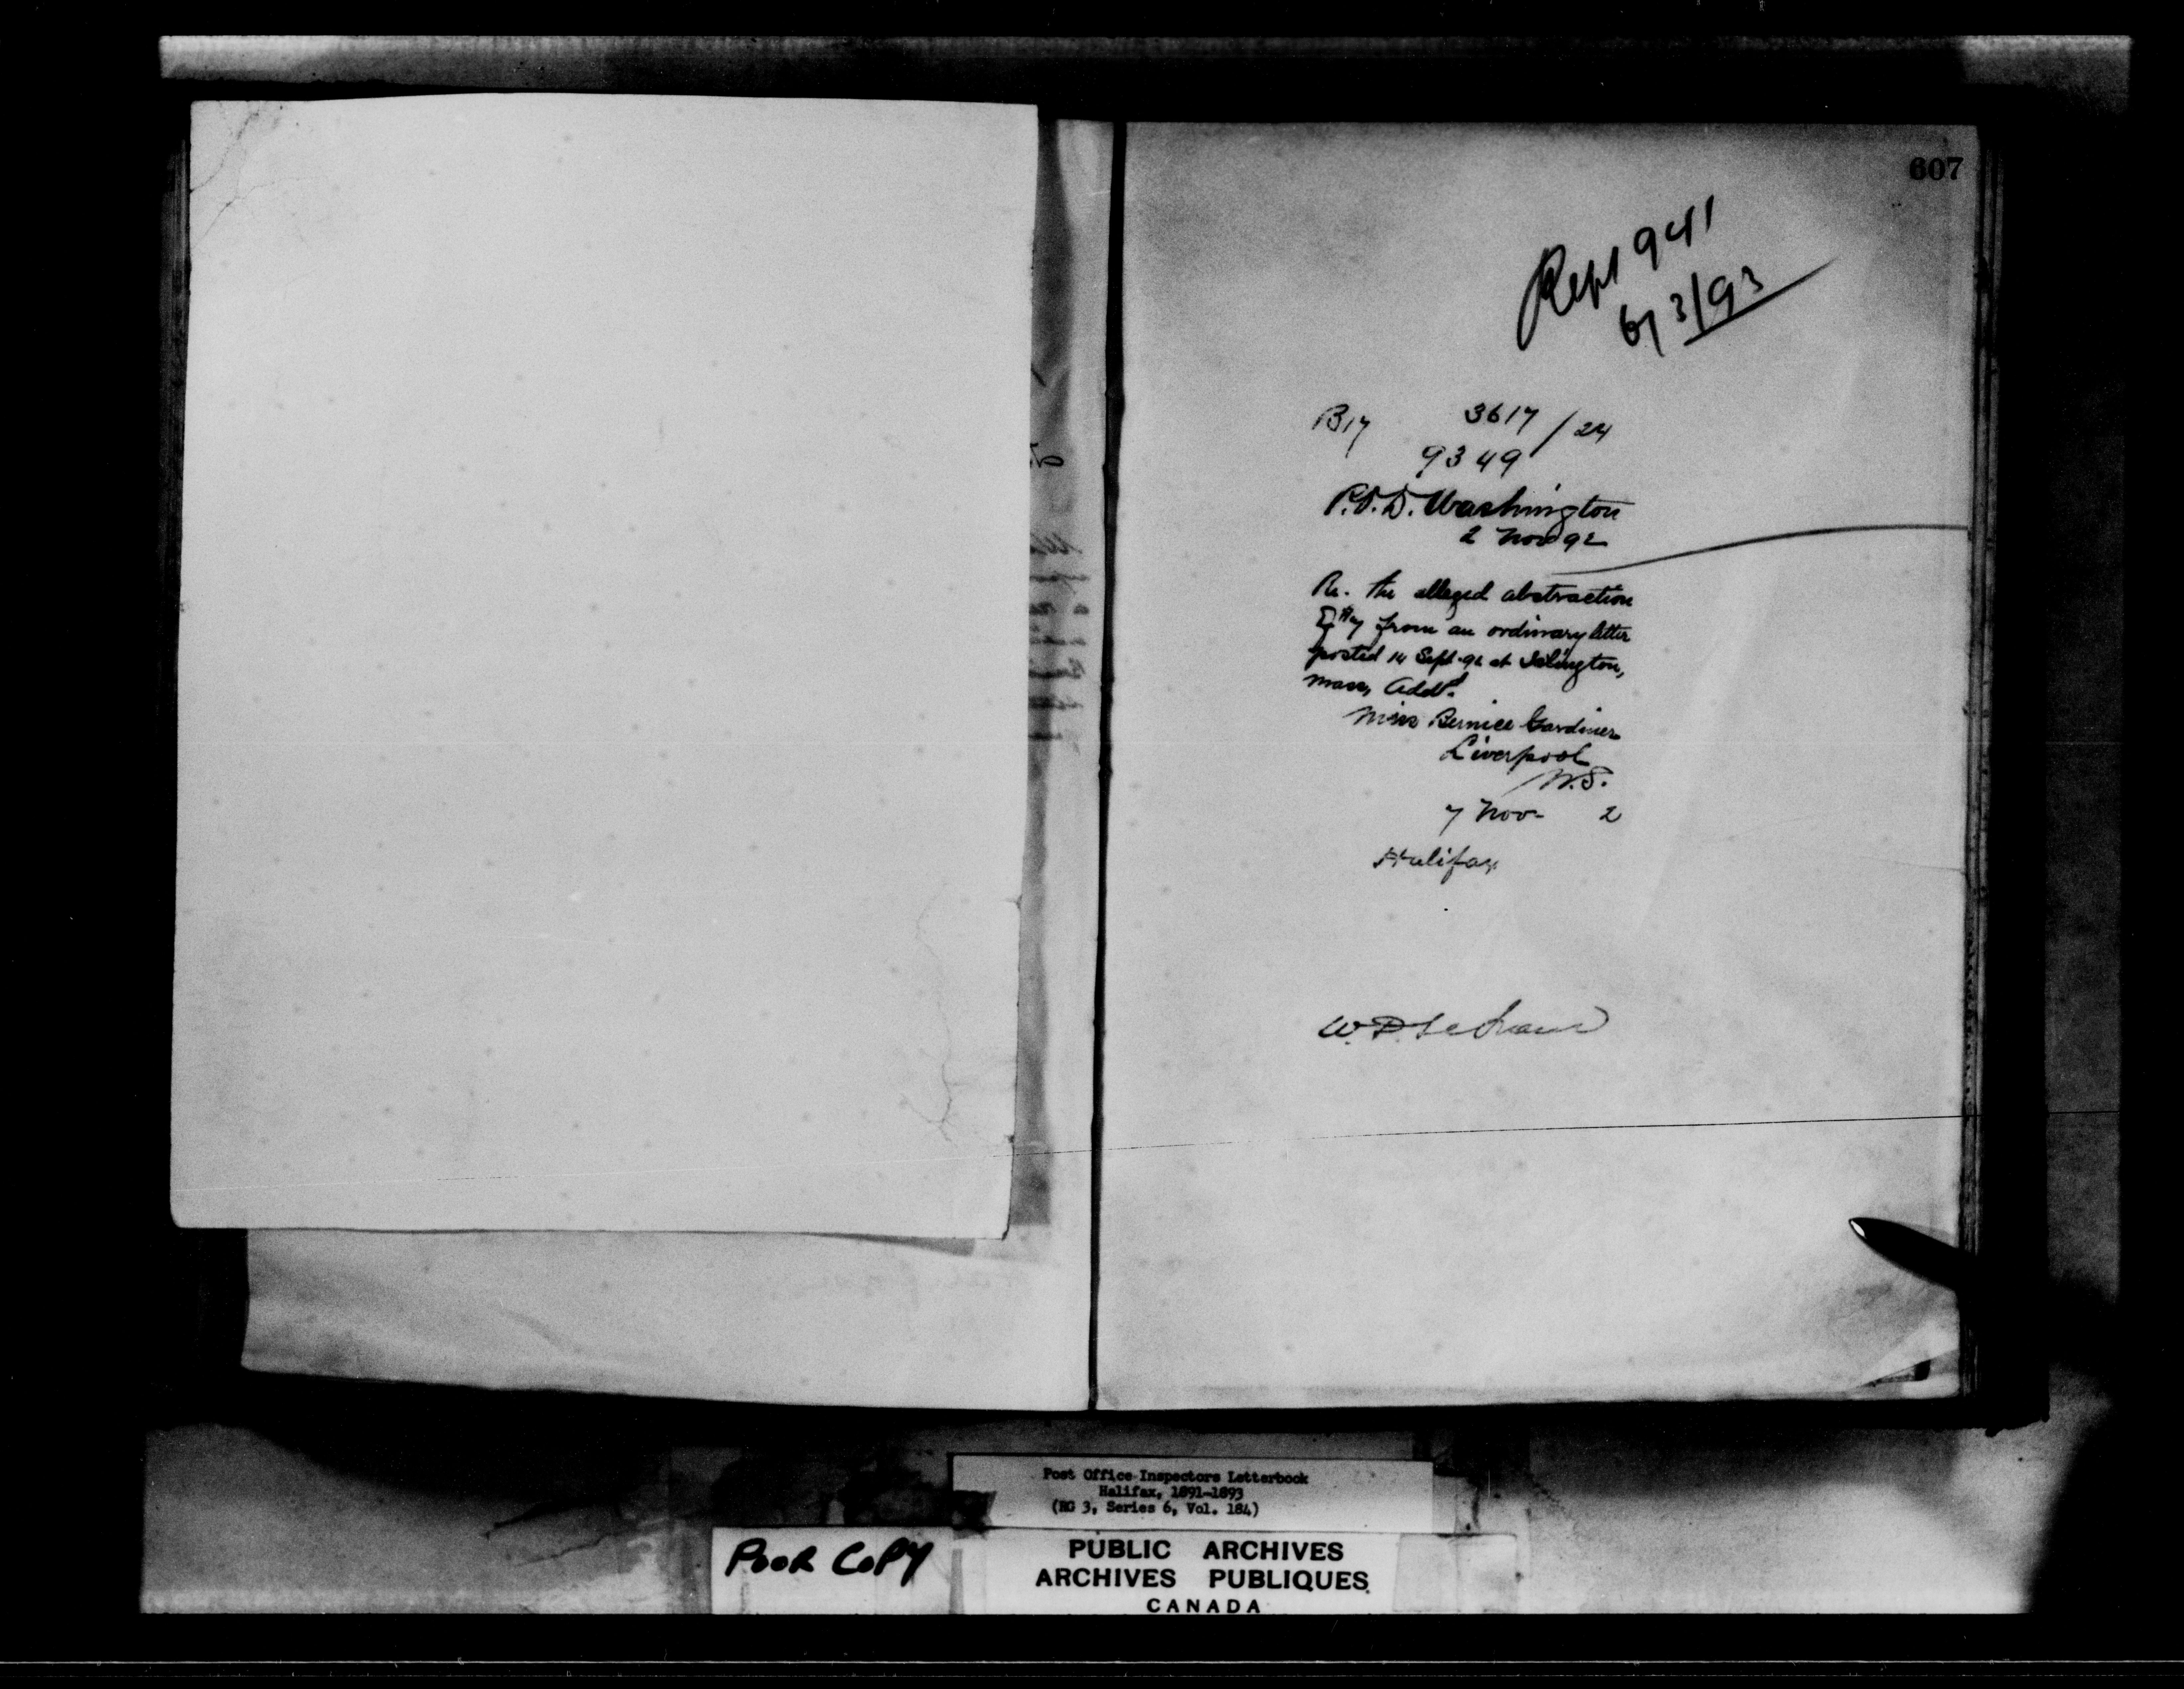 607
Rept 941
6/3/93
B17 3617 / 24
9349
P.O.D. Washington
2 Nov 92
Re. the alleged abstraction
of from an ordinary letter
posted 14 Sept. 92 at Islington,
Mass, Add^d.
Miss Bernice Gardiner
Liverpool
N.S.
7 Nov- 2
Halifax
W.
Post Office Inspectors Letterbook
Halifax, 1891-1893
(RG 3, Series 6, Vol. 184)
POOR COPY
PUBLIC ARCHIVES
ARCHIVES PUBLIQUES
CANADA